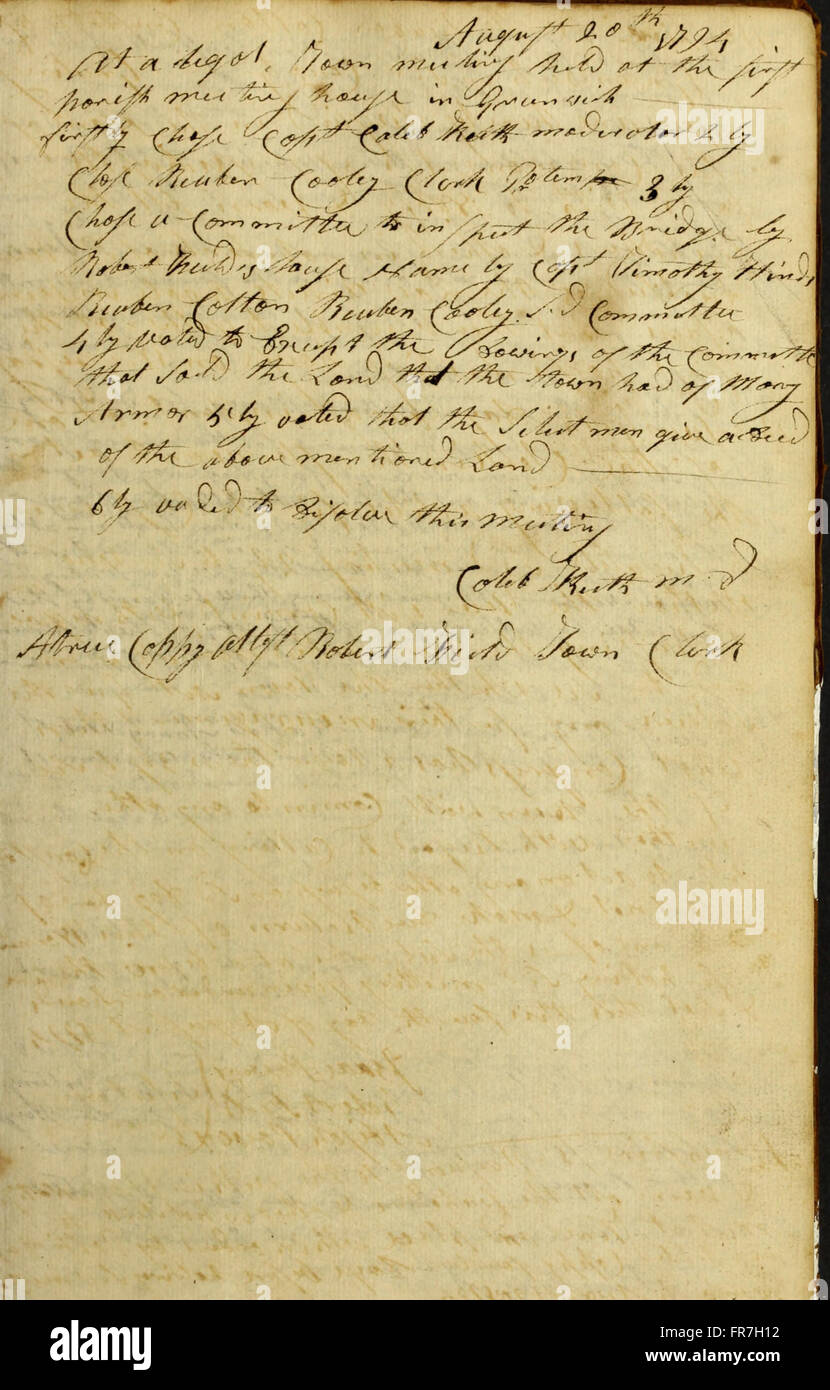 August 20th 1794
At a legal Town meeting held at the first
parish meeting house in Greenwich
firstly Chose Capt Caleb Keith moderator 2 ly
Chose Reuben Cooley Clark Protem 3 ly
Chose a Committee to inspect the Bridge by
Robert Fields house Name by Capt Timothy Hinds
Reuben Cotton Reuben Cooley Sd Committee
4 ly voted to Except the Dowings of the Committe
that Sold the Land that the town had of Mary
Armor 5 ly voted that the Select men give a Deed
of the above mentioned Land
6 ly voted to Disolve this meeting
Caleb Keith m d
A true Coppy attest Robert Field Town Clark
alamy
alamy stock photo
FR7H12
www.alamy.com